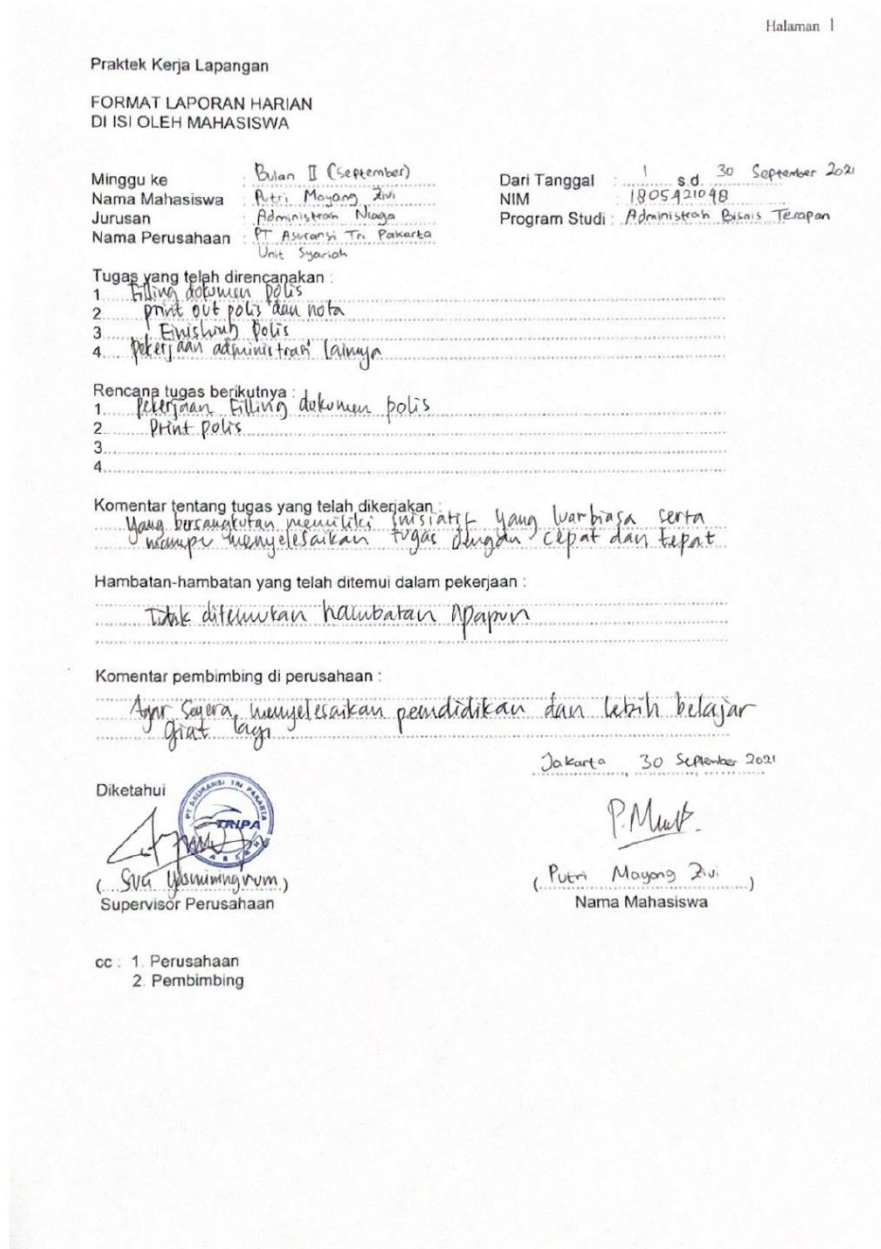 Halaman 1
Praktek Kerja Lapangan
FORMAT LAPORAN HARIAN
DI ISI OLEH MAHASISWA
Minggu ke : Bulan II (September) Dari Tanggal : 1 s.d. 30 September 2021
Nama Mahasiswa : Putri Mayang Zivi NIM : 1805421048
Jurusan : Administrasi Niaga Program Studi : Administrasi Bisnis Terapan
Nama Perusahaan : PT Asuransi Tri Pakarta
Unit Syariah
Tugas yang telah direncanakan :
1. Filling dokumen polis
2. print out polis dan nota
3. Finishing polis
4. pekerjaan administrasi lainnya
Rencana tugas berikutnya :
1. Pekerjaan Filling dokumen polis
2. Print polis
3.
4.
Komentar tentang tugas yang telah dikerjakan :
Yang bersangkutan memiliki inisiatif yang luar biasa serta
mampu menyelesaikan tugas dengan cepat dan tepat
Hambatan-hambatan yang telah ditemui dalam pekerjaan :
Tidak ditemukan hambatan apapun
Komentar pembimbing di perusahaan :
Agar segera menyelesaikan pendidikan dan lebih belajar
giat lagi
Jakarta, 30 September 2021
Diketahui
PT ASURANSI TRI PAKARTA
TRIPA
P.
( Yasminingrum )
( Putri Mayang Zivi )
Supervisor Perusahaan
Nama Mahasiswa
cc : 1. Perusahaan
2. Pembimbing